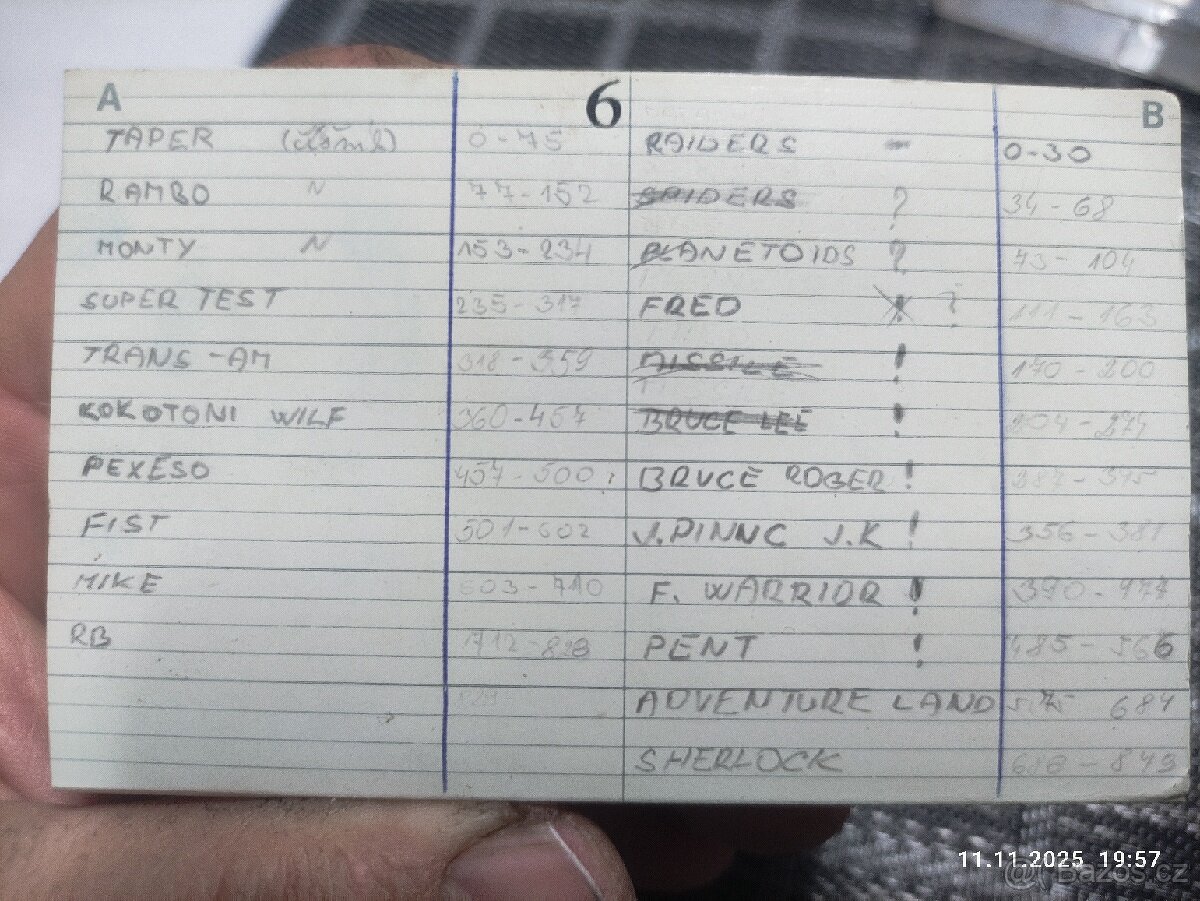 A 6 B
TAPER 0-75 RAIDERS - 0-30
RAMBO N 77-152 SPIDERS ? 34-68
MONTY N 153-234 PLANETOIDS ? 73-104
SUPER TEST 235-317 FRED ? 111-163
TRANS-AM 318-359 MISSILE ! 170-200
KOKOTONI WILF 360-457 BRUCE LEE ! 204-274
PEXESO 457-500 BRUCE ROGER !
FIST 501-602 J.PINNC J.K ! 356-381
MIKE 603-710 F. WARRIOR ! 390-477
RB 712-828 PENT ! 485-566
ADVENTURE LAND 575 684
SHERLOCK
11.11.2025 19:57
@Bazos.cz